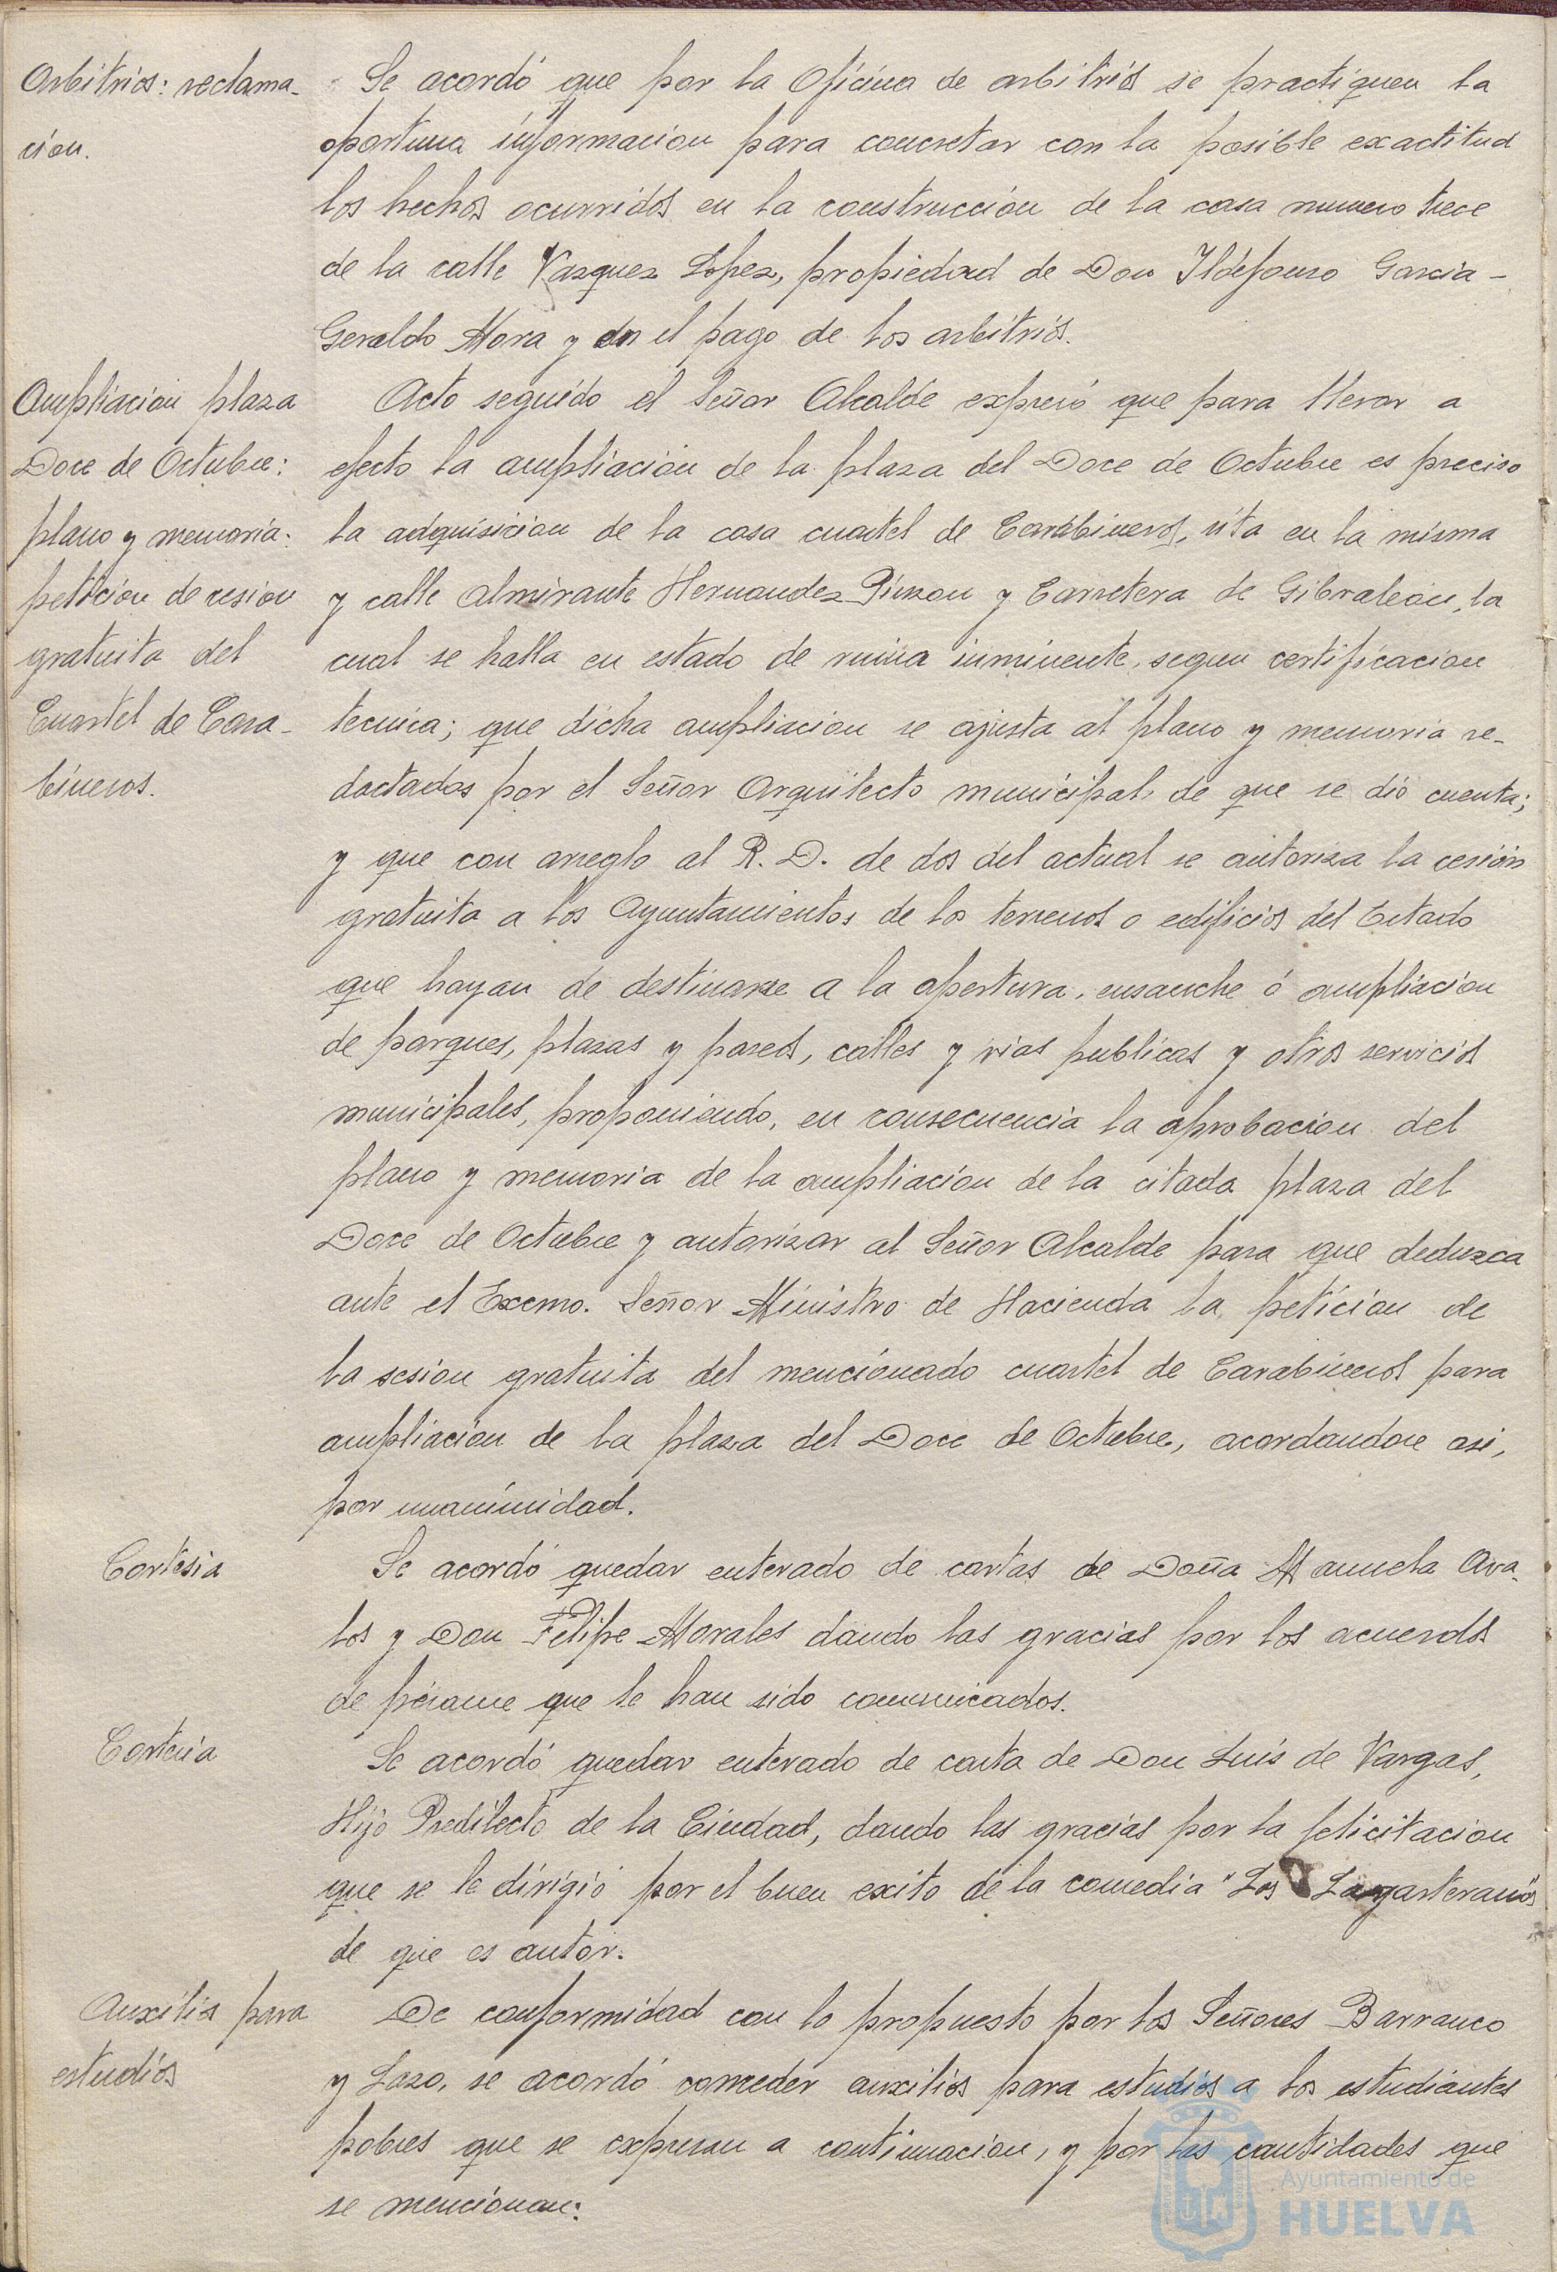 Arbitrios: reclama-
cion.
Se acordó que por la Oficina de arbitrios se practiquen la
oportuna información para concretar con la posible exactitud
los hechos ocurridos en la construcción de la casa numero trece
de la calle Vazquez Lopez, propiedad de Don Ildefonso Garcia-
Geraldo Mora y en el pago de los arbitrios.
Ampliacion plaza
Doce de Octubre:
plano y memoria:
peticion de cesion
gratuita del
Cuartel de Cara-
bineros.
Acto seguido el Señor Alcalde expresó que para llevar a
efecto la ampliacion de la plaza del Doce de Octubre es preciso
la adquisicion de la casa cuartel de Carabineros, sita en la misma
y calle Almirante Hernandez Pinzon y Carretera de Gibraleon, la
cual se halla en estado de ruina inminente, segun certificacion
tecnica; que dicha ampliacion se ajusta al plano y memoria re-
dactados por el Señor Arquitecto municipal, de que se dió cuenta;
y que con arreglo al R. D. de dos del actual se autoriza la cesión
gratuita a los Ayuntamientos de los terrenos o edificios del Estado
que hayan de destinarse a la apertura, ensanche ó ampliacion
de parques, plazas y paseos, calles y vias publicas y otros servicios
municipales, proponiendo, en consecuencia la aprobacion del
plano y memoria de la ampliación de la citada plaza del
Doce de Octubre y autorizar al Señor Alcalde para que deduzca
ante el Excmo. Señor Ministro de Hacienda la peticion de
la sesion gratuita del mencionado cuartel de Carabineros para
ampliación de la plaza del Doce de Octubre, acordandose asi,
por unanimidad.
Cortesia
Se acordó quedar enterado de cartas de Doña Manuela Ava-
los y Don Felipe Morales dando las gracias por los acuerdos
de pésame que le han sido comunicados.
Cortesia
Se acordó quedar enterado de carta de Don Luis de Vargas,
Hijo Predilecto de la Ciudad, dando las gracias por la felicitacion
que se le dirigió por el buen exito de la comedia "Los Lagarteranos"
de que es autor.
Auxilios para
estudios
De conformidad con lo propuesto por los Señores Barranco
y Lazo, se acordó conceder auxilios para estudios a los estudiantes
pobres que se expresan a continuacion, y por las cantidades que
se mencionan:
Ayuntamiento de
HUELVA